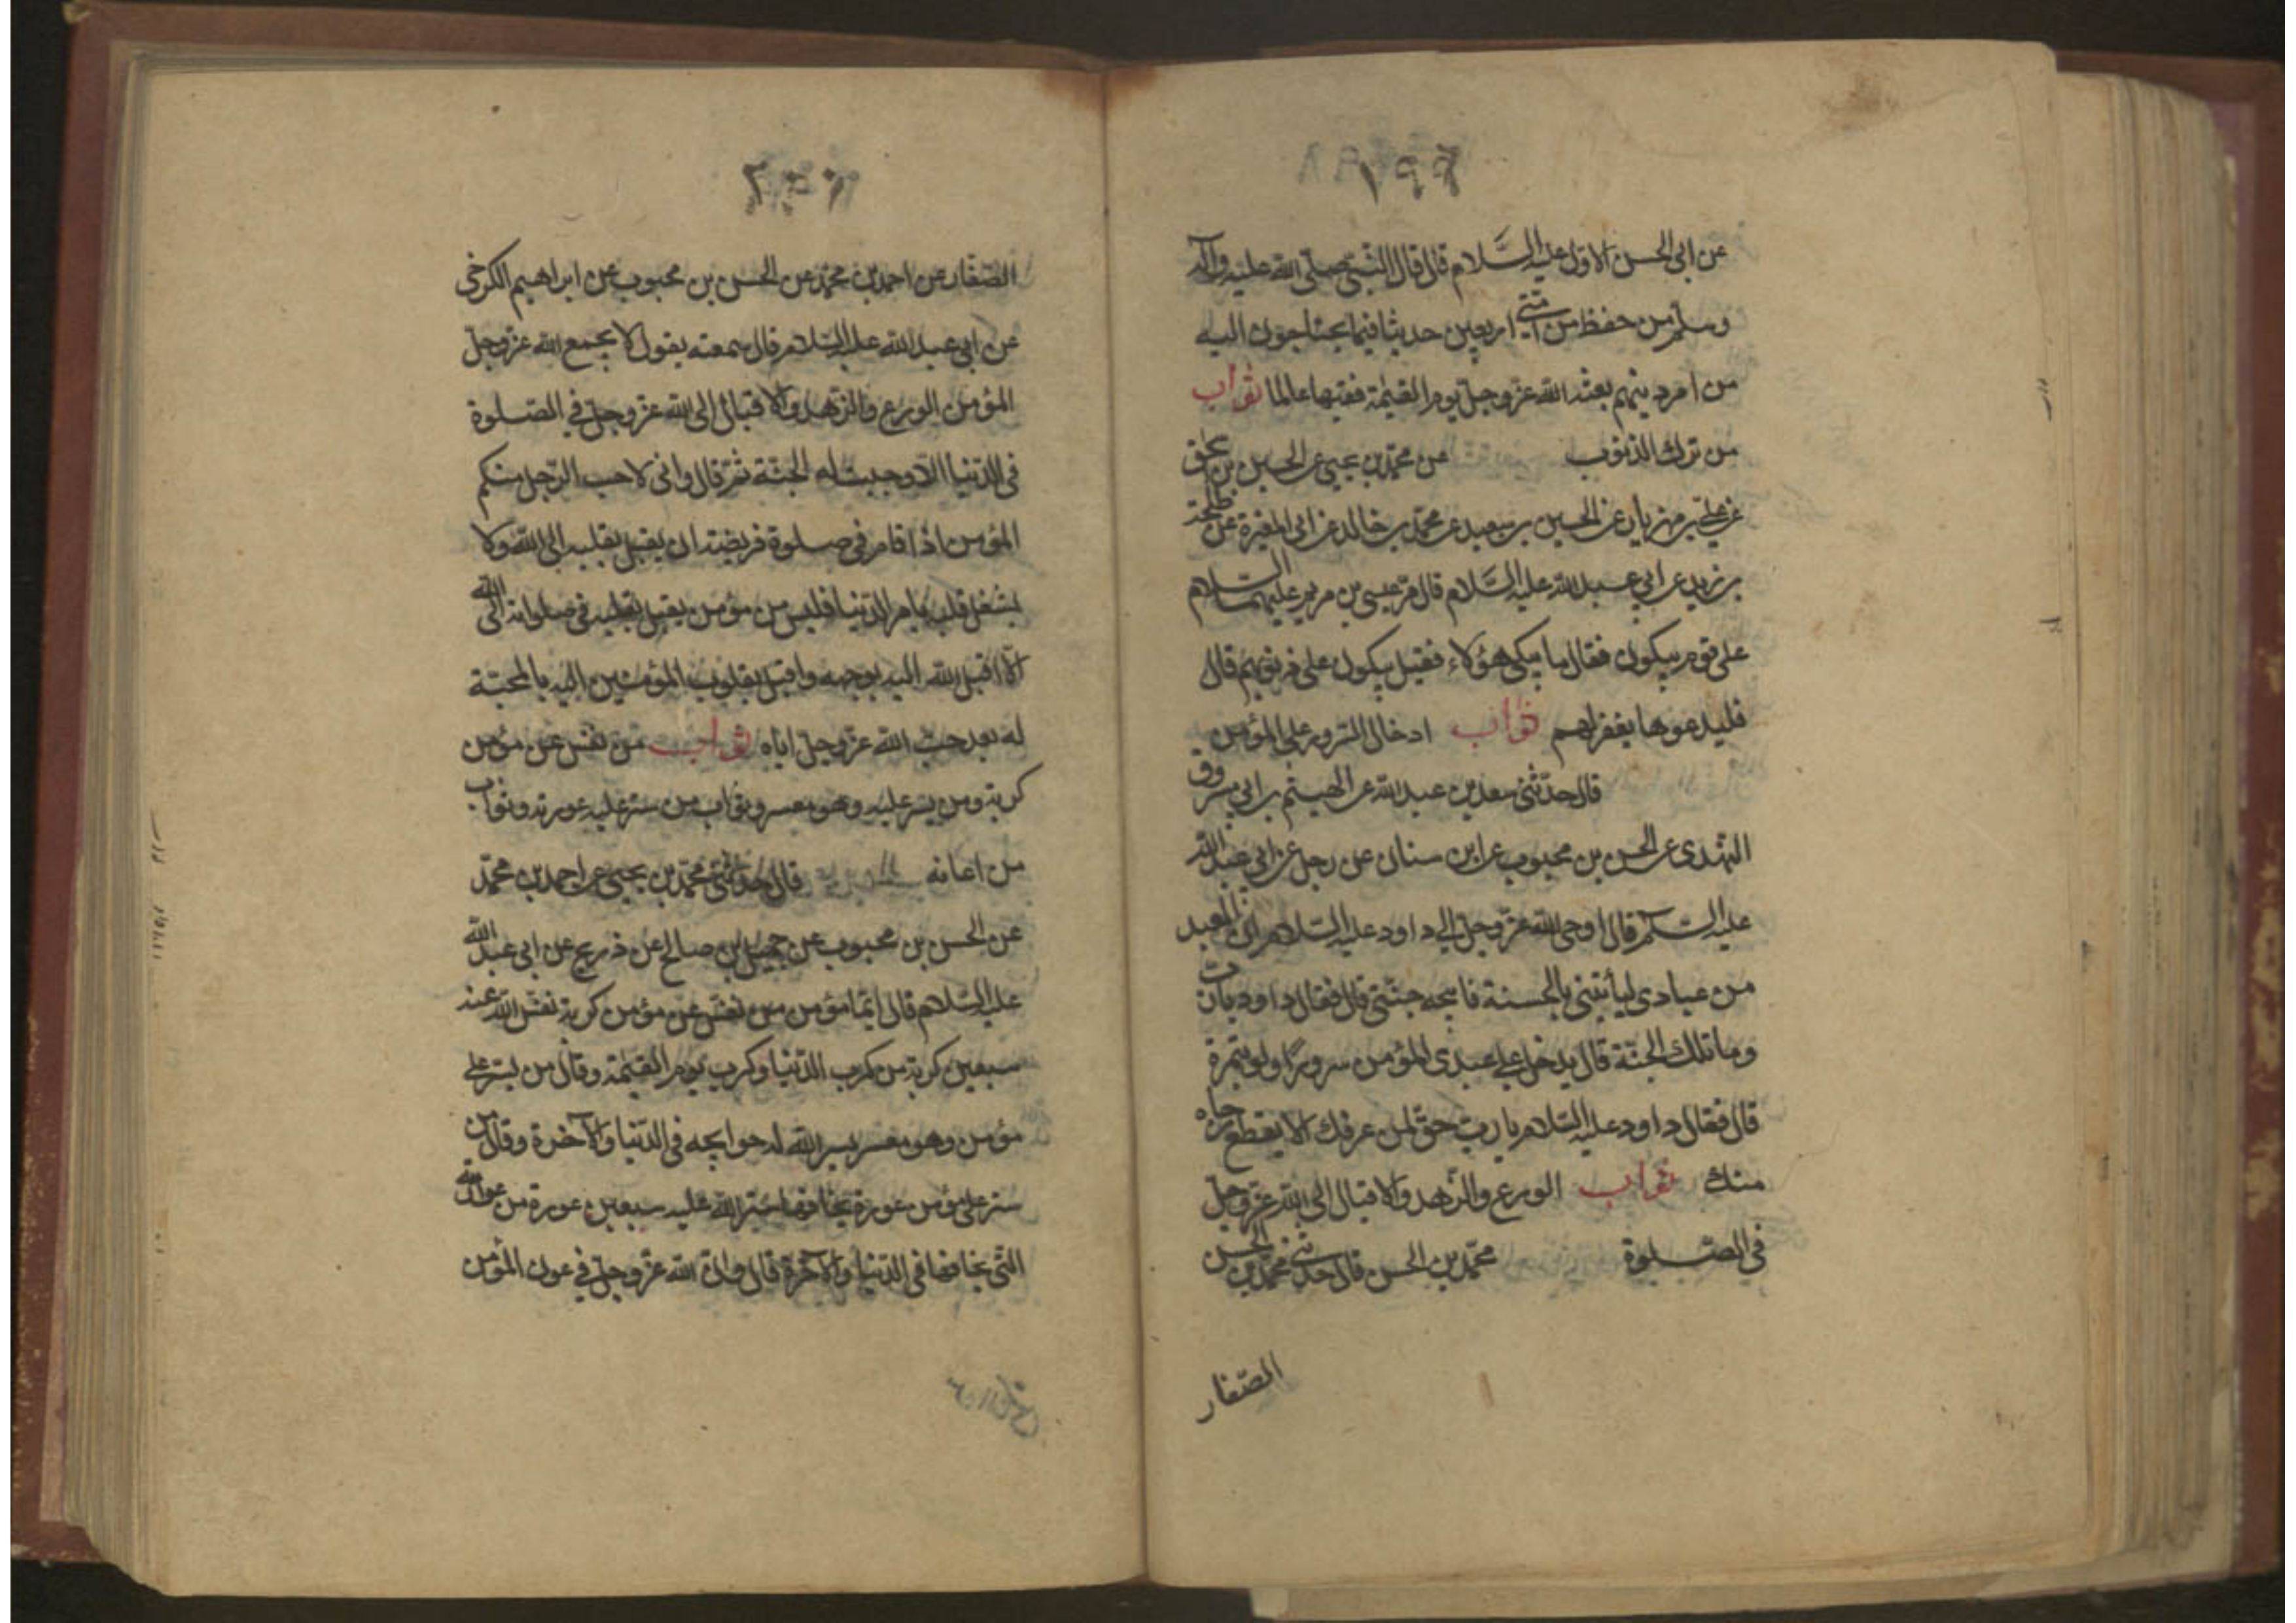 ١٩٩
عن ابى الحسن الاول عليه السّلام قال قال النّبىّ صلّى الله عليه وآله
وسلّم من حفظ من امّتى اربعين حديثا فيما يحتاجون اليه
من امر دينهم بعثه الله عزّ وجلّ يوم القيٰمة فقيها عالما ثواب
من ترك الذنوب عن محمّد بن يحيى عن الحسين بن اسحق
عن علىّ بن مهزيار عن الحسين بن سعيد عن محمّد بن خالد عن ابى المغيرة عن طلحة
بن زيد عن ابى عبد الله عليه السّلام قال مرّ عيسى بن مريم عليهما السلام
على قوم يبكون فقال ما يبكى هؤلاء فقيل يبكون على ذنوبهم قال
فليدعوها يغفر لهم ثواب ادخال السّرور على المؤمن
قال حدّثنى سعد بن عبد الله عن الهيثم بن ابى مسروق
النهدى عن الحسن بن محبوب عن ابن سنان عن رجل عن ابى عبد الله
عليه السلم قال اوحى الله عزّ وجلّ الى داود عليه السّلام انّ العبد
من عبادى ليأتينى بالحسنة فابيحه جنّتى قال فقال داود يا ربّ
وما تلك الجنّة قال يدخل على عبدى المؤمن سرورًا ولو بتمرة
قال فقال داود عليه السّلام يا ربّ حقّ لمن عرفك الا يقطع رجاه
منك ثواب الورع والزّهد والاقبال الى الله عزّ وجلّ
فى الصّلوة محمّد بن الحسن قال حدّثنى محمّد بن الحسن
الصّفار
٢٠٠
الصّفّار عن احمد بن محمّد عن الحسن بن محبوب عن ابراهيم الكرخى
عن ابى عبد الله عليه السّلام قال سمعته يقول لا يجمع الله عزّ وجلّ
المؤمن الورع والزّهد والاقبال الى الله عزّ وجلّ فى الصّلوة
فى الدّنيا الّا وجبت له الجنّة ثمّ قال وانى لاحب الرّجل منكم
المؤمن اذا قام فى صلوة فريضته ان يقبل بقلبه الى الله ولا
يشغل قلبه بامر الدّنيا فليس من مؤمن يقبل بقلبه فى صلواته الى الله
الّا اقبل الله اليه بوجهه واقبل بقلوب المؤمنين اليه بالمحبّة
له بعد حبّ الله عزّ وجلّ ايّاه ثواب من نفّس عن مؤمن
كربة ومن يسّر عليه وهو معسر وثواب من ستر عليه عورته وثواب
من اعانه قال حدّثنى محمّد بن يحيى عن احمد بن محمّد
عن الحسن بن محبوب عن جميل بن صالح عن ذريح عن ابى عبد الله
عليه السّلام قال ايّما مؤمن نفّس عن مؤمن كربة نفّس الله عنه
سبعين كربة من كرب الدّنيا وكرب يوم القيٰمة وقال من يسّر على
مؤمن وهو معسر يسر الله له حوايجه فى الدّنيا والآخرة وقال من
ستر على مؤمن عورة يخافها ستر الله عليه سبعين عورة من عوراته
الّتى يخافها فى الدّنيا والآخرة قال وانّ الله عزّ وجلّ فى عون المؤمن